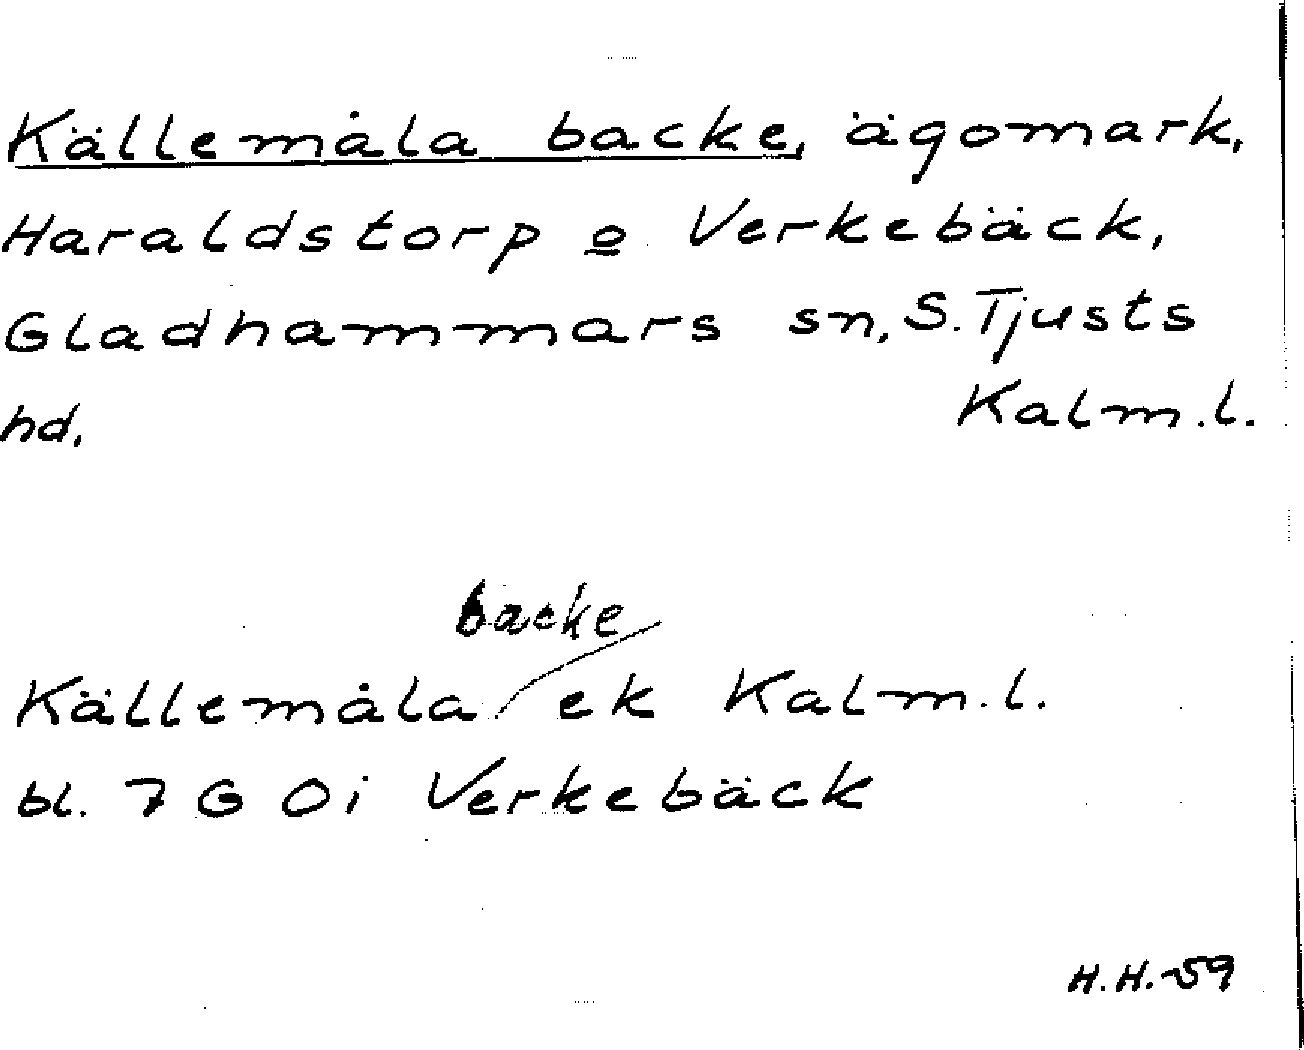 Källemåla backe, ägomark,
Haraldstorp o Verkebäck,
Gladhammars sn, S. Tjusts
hd. Kalm.l.
backe
Källemåla ek Kalm.l.
bl. 7 G 0i Verkebäck
H.H.-59